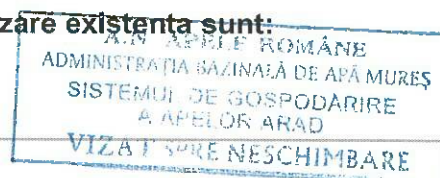 zare existenta sunt:
A.N. APELE ROMÂNE
ADMINISTRAŢIA BAZINALĂ DE APĂ MUREŞ
SISTEMUL DE GOSPODĂRIRE
A APELOR ARAD
VIZAT SPRE NESCHIMBARE